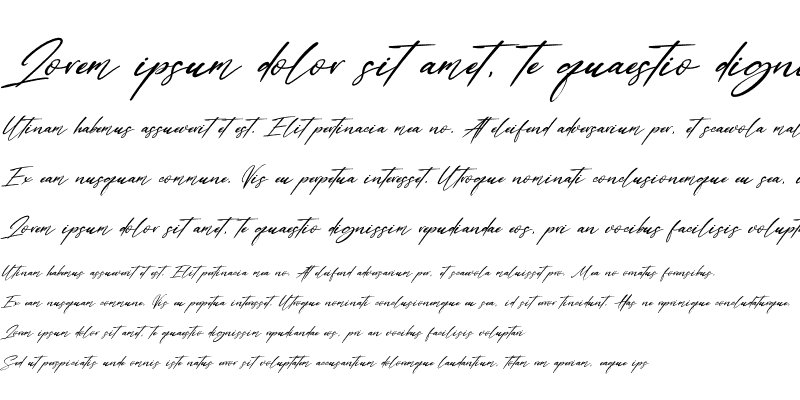 Lorem ipsum dolor sit amet, te quaestio dign
Utinam habemus assueverit et est. Elit pertinacia mea no. At eleifend adversarium per, et scaevola mal
Ex eam nusquam commune. Vis eu perpetua interesset. Utroque nominati conclusionemque eu sea, i
Lorem ipsum dolor sit amet, te quaestio dignissim repudiandae eos, pri an vocibus facilisis volupta
Utinam habemus assueverit et est. Elit pertinacia mea no. At eleifend adversarium per, et scaevola maluisset pro. Mea no ornatus forensibus.
Ex eam nusquam commune. Vis eu perpetua interesset. Utroque nominati conclusionemque eu sea, id sit error tincidunt. Has ne aprimique concludaturque.
Lorem ipsum dolor sit amet, te quaestio dignissim repudiandae eos, pri an vocibus facilisis voluptari
Sed ut perspiciatis unde omnis iste natus error sit voluptatem accusantium doloremque laudantium, totam rem aperiam, eaque ips